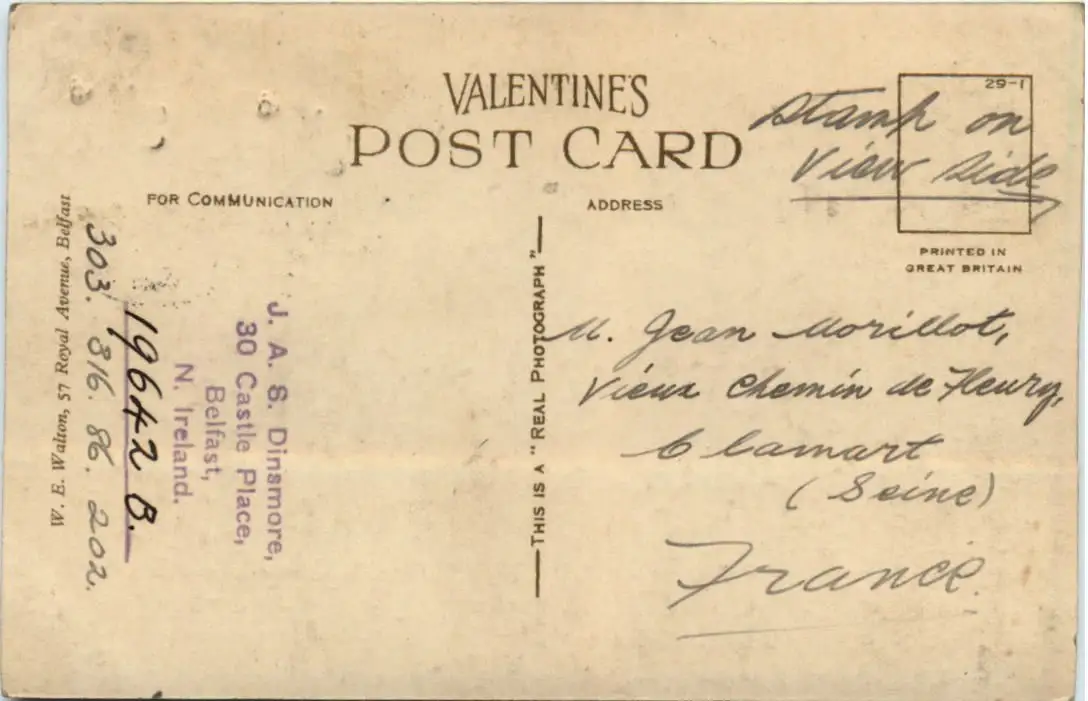 VALENTINE'S
POST CARD
29-1
Stamp on
View side
FOR COMMUNICATION
ADDRESS
PRINTED IN
GREAT BRITAIN
J. A. S. Dinsmore,
30 Castle Place,
Belfast,
N. Ireland.
19642 B.
303. 316. 86. 202.
W. E. Walton, 57 Royal Avenue, Belfast
THIS IS A "REAL PHOTOGRAPH"
M. Jean Morillot,
Vieux Chemin de Fleury,
Clamart
(Seine)
France.